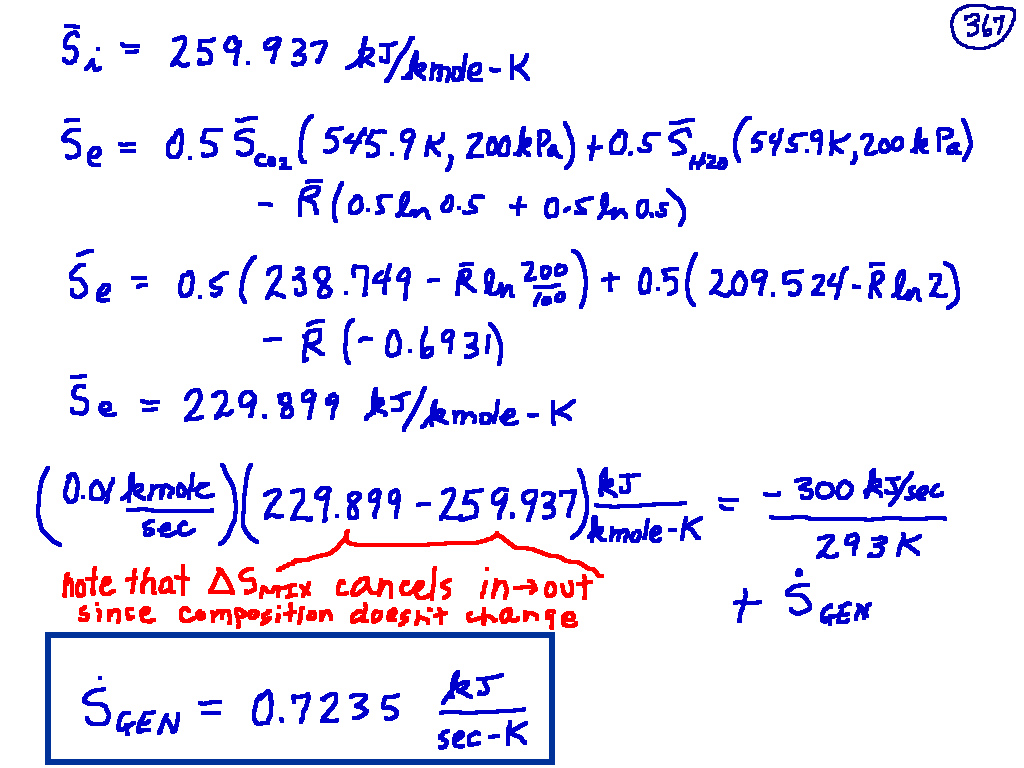 367
S̄i = 259.937 kJ/kmole-K
S̄e = 0.5 S̄CO2 (545.9 K, 200 kPa) + 0.5 S̄H2O (545.9 K, 200 kPa)
- R̄ (0.5 ln 0.5 + 0.5 ln 0.5)
S̄e = 0.5 (238.749 - R̄ ln 200/100) + 0.5 (209.524 - R̄ ln 2)
- R̄ (-0.6931)
S̄e = 229.899 kJ/kmole-K
(0.01 kmole/sec)(229.899 - 259.937) kJ/kmole-K = -300 kJ/sec / 293 K
note that ΔSMIX cancels in→out
+ ṠGEN
since composition doesn't change
ṠGEN = 0.7235 kJ/sec-K